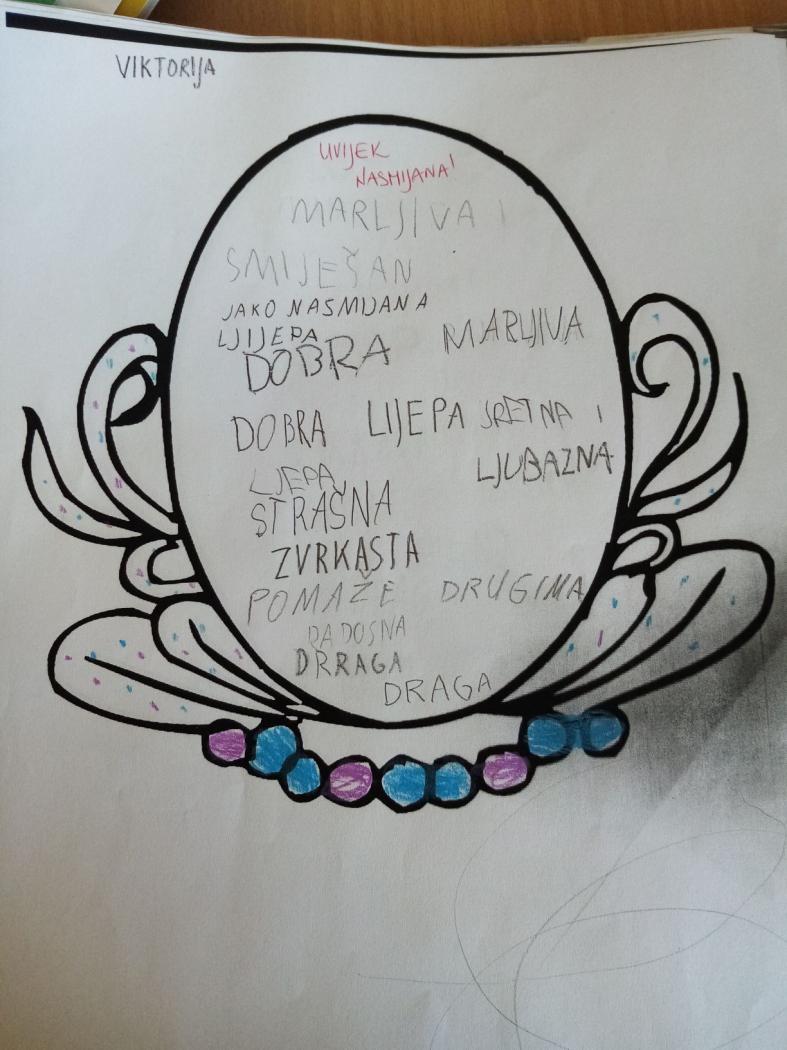 VIKTORIJA
UVIJEK
NASMIJANA!
MARLJIVA I
SMIJEŠAN
JAKO NASMIJANA
LJIJEPA
DOBRA
MARLJIVA
DOBRA
LIJEPA
SRETNA I
LJUBAZNA
LJEPA
STRAŠNA
ZVRKASTA
POMAŽE DRUGIMA
RADOSNA
DRRAGA
DRAGA